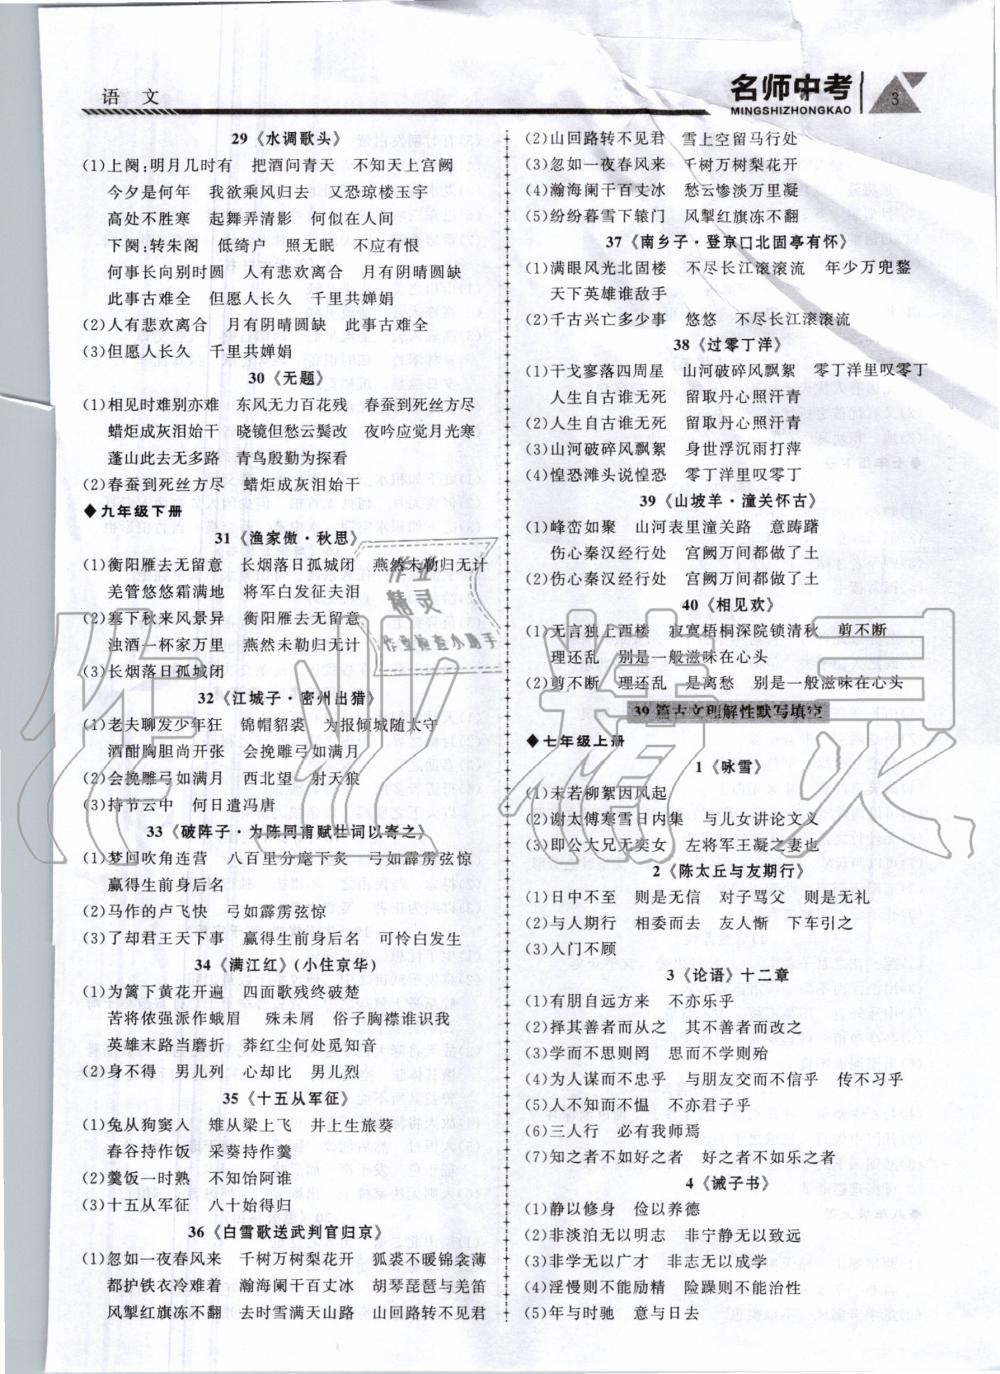 语 文
名师中考
MINGSHIZHONGKAO
3
29《水调歌头》
(1)上阕:明月几时有 把酒问青天 不知天上宫阙
今夕是何年 我欲乘风归去 又恐琼楼玉宇
高处不胜寒 起舞弄清影 何似在人间
下阕:转朱阁 低绮户 照无眠 不应有恨
何事长向别时圆 人有悲欢离合 月有阴晴圆缺
此事古难全 但愿人长久 千里共婵娟
(2)人有悲欢离合 月有阴晴圆缺 此事古难全
(3)但愿人长久 千里共婵娟
30《无题》
(1)相见时难别亦难 东风无力百花残 春蚕到死丝方尽
蜡炬成灰泪始干 晓镜但愁云鬓改 夜吟应觉月光寒
蓬山此去无多路 青鸟殷勤为探看
(2)春蚕到死丝方尽 蜡炬成灰泪始干
◆九年级下册
31《渔家傲·秋思》
(1)衡阳雁去无留意 长烟落日孤城闭 燕然未勒归无计
羌管悠悠霜满地 将军白发征夫泪
(2)塞下秋来风景异 衡阳雁去无留意
浊酒一杯家万里 燕然未勒归无计
(3)长烟落日孤城闭
32《江城子·密州出猎》
(1)老夫聊发少年狂 锦帽貂裘 为报倾城随太守
酒酣胸胆尚开张 会挽雕弓如满月
(2)会挽雕弓如满月 西北望 射天狼
(3)持节云中 何日遣冯唐
33《破阵子·为陈同甫赋壮词以寄之》
(1)梦回吹角连营 八百里分麾下炙 弓如霹雳弦惊
赢得生前身后名
(2)马作的卢飞快 弓如霹雳弦惊
(3)了却君王天下事 赢得生前身后名 可怜白发生
34《满江红》(小住京华)
(1)为篱下黄花开遍 四面歌残终破楚
苦将侬强派作蛾眉 殊未屑 俗子胸襟谁识我
英雄末路当磨折 莽红尘何处觅知音
(2)身不得 男儿列 心却比 男儿烈
35《十五从军征》
(1)兔从狗窦入 雉从梁上飞 井上生旅葵
舂谷持作饭 采葵持作羹
(2)羹饭一时熟 不知饴阿谁
(3)十五从军征 八十始得归
36《白雪歌送武判官归京》
(1)忽如一夜春风来 千树万树梨花开 狐裘不暖锦衾薄
都护铁衣冷难着 瀚海阑干百丈冰 胡琴琵琶与羌笛
风掣红旗冻不翻 去时雪满天山路 山回路转不见君
(2)山回路转不见君 雪上空留马行处
(3)忽如一夜春风来 千树万树梨花开
(4)瀚海阑干百丈冰 愁云惨淡万里凝
(5)纷纷暮雪下辕门 风掣红旗冻不翻
37《南乡子·登京口北固亭有怀》
(1)满眼风光北固楼 不尽长江滚滚流 年少万兜鍪
天下英雄谁敌手
(2)千古兴亡多少事 悠悠 不尽长江滚滚流
38《过零丁洋》
(1)干戈寥落四周星 山河破碎风飘絮 零丁洋里叹零丁
人生自古谁无死 留取丹心照汗青
(2)人生自古谁无死 留取丹心照汗青
(3)山河破碎风飘絮 身世浮沉雨打萍
(4)惶恐滩头说惶恐 零丁洋里叹零丁
39《山坡羊·潼关怀古》
(1)峰峦如聚 山河表里潼关路 意踌躇
伤心秦汉经行处 宫阙万间都做了土
(2)伤心秦汉经行处 宫阙万间都做了土
40《相见欢》
(1)无言独上西楼 寂寞梧桐深院锁清秋 剪不断
理还乱 别是一般滋味在心头
(2)剪不断 理还乱 是离愁 别是一般滋味在心头
39篇古文理解性默写填空
◆七年级上册
1《咏雪》
(1)未若柳絮因风起
(2)谢太傅寒雪日内集 与儿女讲论文义
(3)即公大兄无奕女 左将军王凝之妻也
2《陈太丘与友期行》
(1)日中不至 则是无信 对子骂父 则是无礼
(2)与人期行 相委而去 友人惭 下车引之
(3)入门不顾
3《论语》十二章
(1)有朋自远方来 不亦乐乎
(2)择其善者而从之 其不善者而改之
(3)学而不思则罔 思而不学则殆
(4)为人谋而不忠乎 与朋友交而不信乎 传不习乎
(5)人不知而不愠 不亦君子乎
(6)三人行 必有我师焉
(7)知之者不如好之者 好之者不如乐之者
4《诫子书》
(1)静以修身 俭以养德
(2)非淡泊无以明志 非宁静无以致远
(3)非学无以广才 非志无以成学
(4)淫慢则不能励精 险躁则不能治性
(5)年与时驰 意与日去
作业
精灵
作业检查小助手
作业精灵